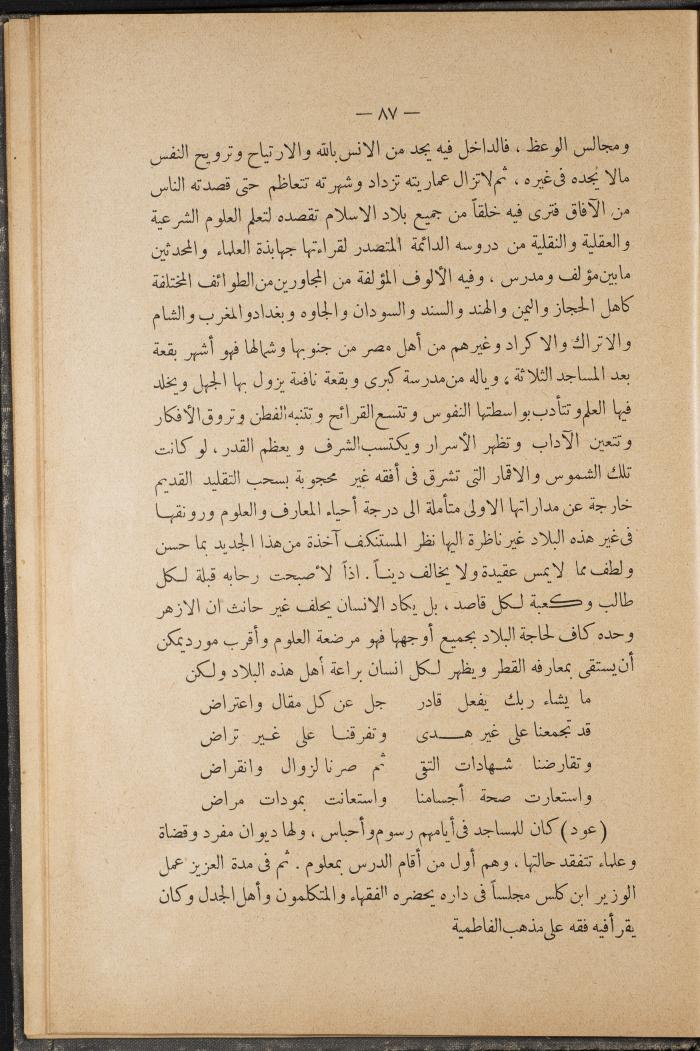 — ٨٧ —
ومجالس الوعظ ، فالداخل فيه يجد من الانس بالله والارتياح وترويح النفس
مالا يجده فى غيره ، ثم لا تزال عماريته تزداد وشهرته تتعاظم حتى قصدته الناس
من الآفاق فترى فيه خلقاً من جميع بلاد الاسلام تقصده لتعلم العلوم الشرعية
والعقلية والنقلية من دروسه الدائمة المتصدر لقراءتها جهابذة العلماء والمحدثين
مابين مؤلف ومدرس ، وفيه الألوف المؤلفة من المجاورين من الطوائف المختلفة
كاهل الحجاز واليمن والهند والسند والسودان والجاوه وبغداد والمغرب والشام
والاتراك والاكراد وغيرهم من أهل مصر من جنوبها وشمالها فهو أشهر بقعة
بعد المساجد الثلاثة ، وياله من مدرسة كبرى وبقعة نافعة يزول بها الجهل ويخلد
فيها العلم وتتأدب بواسطتها النفوس وتتسع القرائح وتتنبه الفطن وتروق الأفكار
وتتعين الآداب وتظهر الأسرار ويكتسب الشرف ويعظم القدر ، لو كانت
تلك الشموس والاقمار التى تشرق فى أفقه غير محجوبة بسحب التقليد القديم
خارجة عن مداراتها الاولى متأملة الى درجة أحياء المعارف والعلوم ورونقها
فى غير هذه البلاد غير ناظرة اليها نظر المستنكف آخذة من هذا الجديد بما حسن
ولطف مما لايمس عقيدة ولا يخالف ديناً . اذاً لأصبحت رحابه قبلة لكل
طالب وكعبة لكل قاصد ، بل يكاد الانسان يحلف غير حانث ان الازهر
وحده كاف لحاجة البلاد بجميع أوجهها فهو مرضعة العلوم وأقرب مورد يمكن
أن يستقى بمعارفه القطر ويظهر لكل انسان براعة أهل هذه البلاد ولكن
ما يشاء ربك يفعل قادر جل عن كل مقال واعتراض
قد تجمعنا على غير هدى وتفرقنا على غير تراض
وتقارضنا شهادات التقى ثم صرنا لزوال وانقراض
واستعارت صحة أجسامنا واستعانت بمودات مراض
( عود ) كان للمساجد فى أيامهم رسوم وأحباس ، ولها ديوان مفرد وقضاة
وعلماء تتفقد حالتها ، وهم أول من أقام الدرس بمعلوم . ثم فى مدة العزيز عمل
الوزير ابن كلس مجلساً فى داره يحضره الفقهاء والمتكلمون وأهل الجدل وكان
يقرأ فيه فقه على مذهب الفاطمية